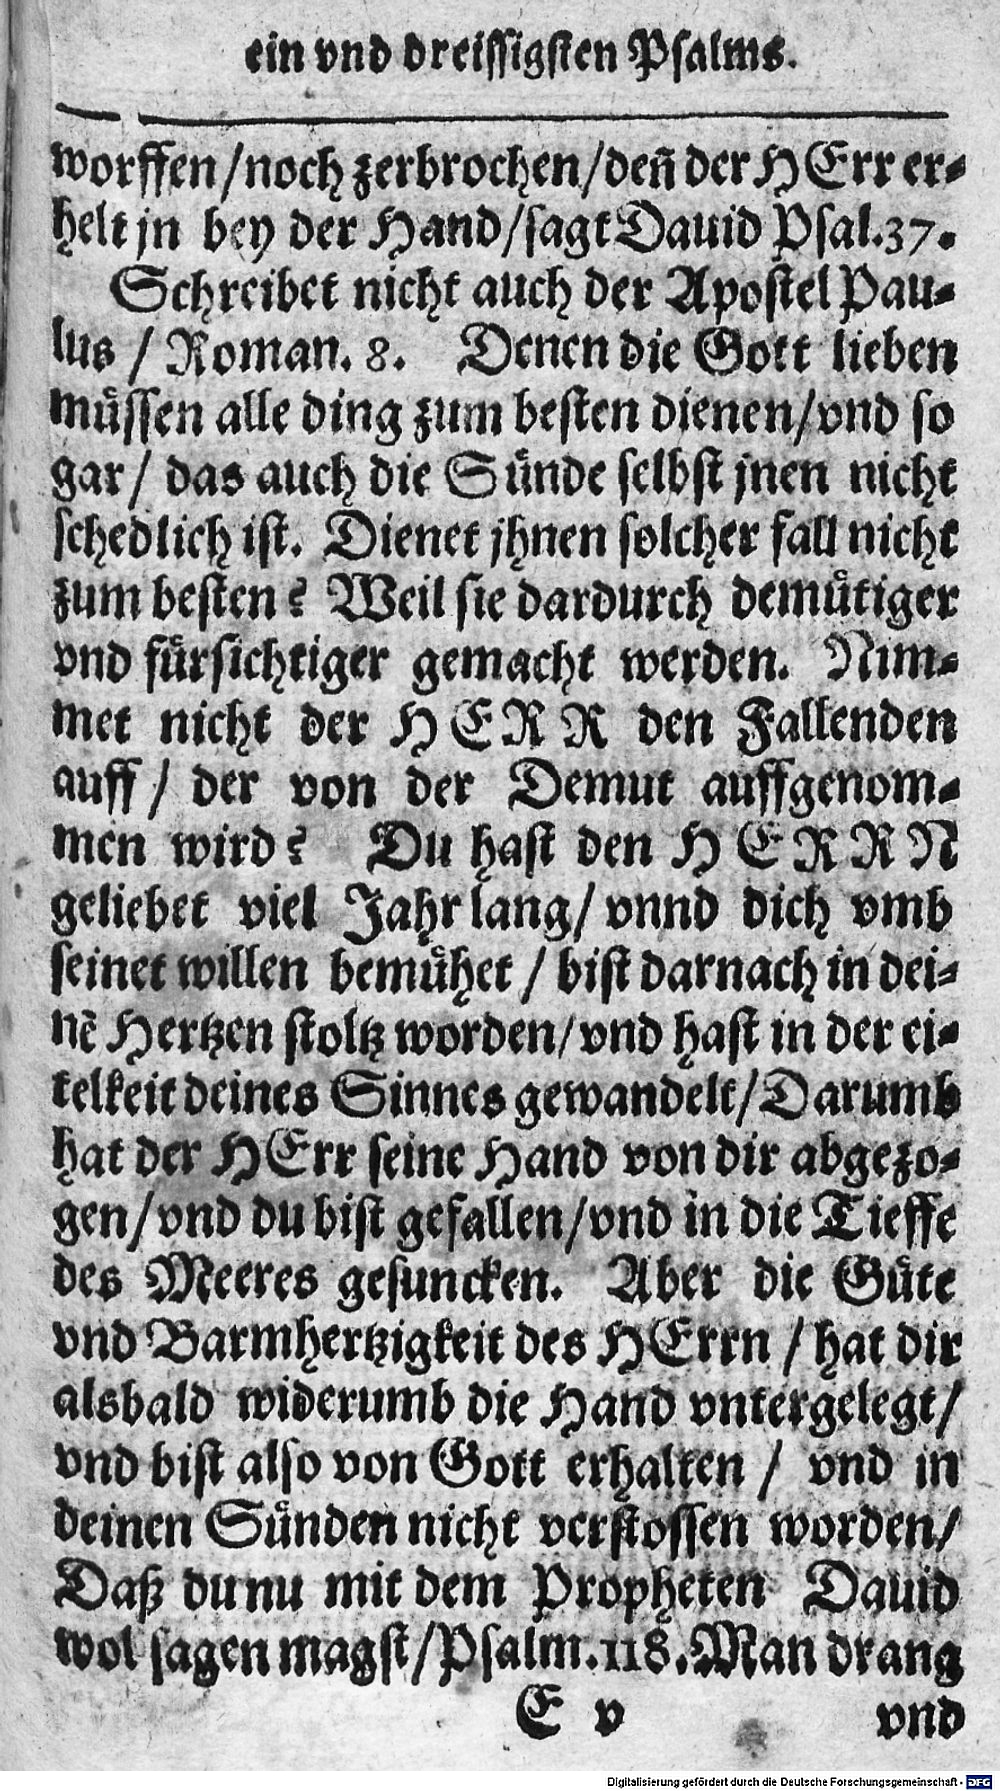 ein vnd dreissigsten Psalms.
worffen/noch zerbrochen/deñ der HErr er-
helt jn bey der Hand/sagt Dauid Psal.37.
Schreibet nicht auch der Apostel Pau-
lus / Roman. 8. Denen die Gott lieben
müssen alle ding zum besten dienen/vnd so
gar/ das auch die Sünde selbst jnen nicht
schedlich ist. Dienet jhnen solcher fall nicht
zum besten? Weil sie dardurch demütiger
vnd fürsichtiger gemacht werden. Nim-
met nicht der HERR den Fallenden
auff/ der von der Demut auffgenom-
men wird? Du hast den HERRN
geliebet viel Jahr lang/ vnnd dich vmb
seinet willen bemühet / bist darnach in dei-
nē Hertzen stoltz worden/vnd hast in der ei-
telkeit deines Sinnes gewandelt/Darumb
hat der HErr seine Hand von dir abgezo-
gen/vnd du bist gefallen/vnd in die Tieffe
des Meeres gesuncken. Aber die Güte
vnd Barmhertzigkeit des HErrn / hat dir
alsbald widerumb die Hand vntergelegt/
vnd bist also von Gott erhalten / vnd in
deinen Sünden nicht verstossen worden/
Daß du nu mit dem Propheten Dauid
wol sagen magst/Psalm.118.Man drang
E v vnd
Digitalisierung gefördert durch die Deutsche Forschungsgemeinschaft - DFG